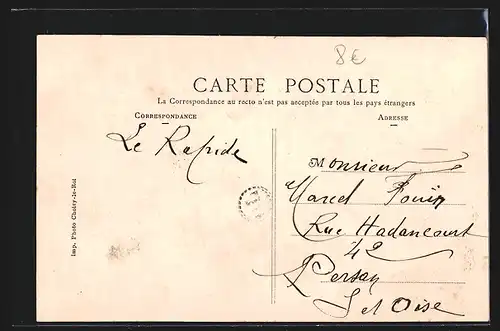 8€
CARTE POSTALE
La Correspondance au recto n'est pas acceptée par tous les pays étrangers
CORRESPONDANCE
ADRESSE
Le Rapide
Monsieur
Marcel
Rue Hadancourt
42
Persan
S et Oise
Imp. Photo Choisy-le-Roi